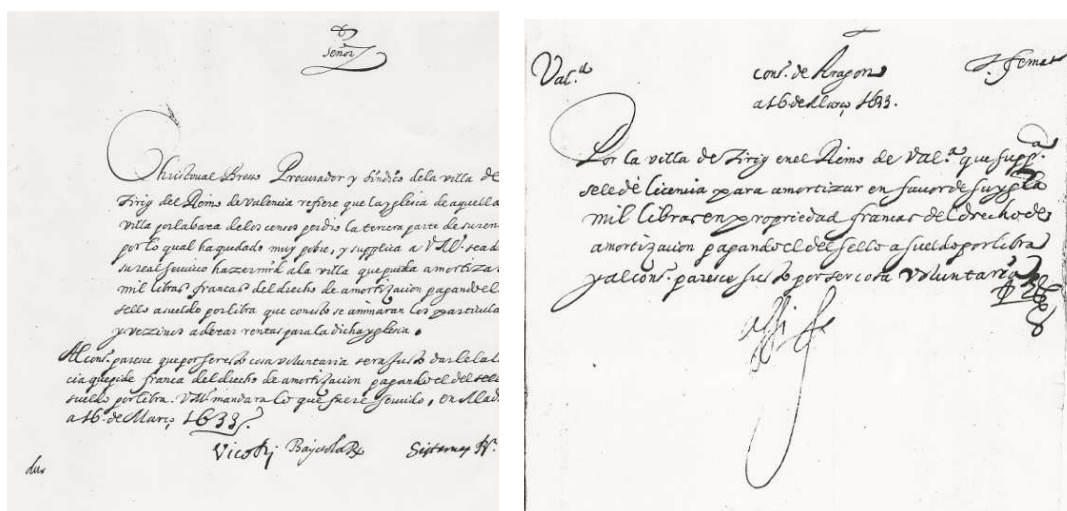 Señor
Christoual Breso Procurador y sindico dela villa de
Tirig del Reino de Valencia refiere que la yglesia de aquella
villa por la baxa de los censos perdio la tercera parte de su ren
por lo qual ha quedado muy pobre, y supplica a V.M. sea de
su real seruicio hazer mrd ála villa que pueda amortizar
mil libras francas del drecho de amortizacion pagando el
sello a sueldo por libra que con esto se animaran los particula
y vezzinos a dexar rentas para la dicha yglesia.
Al cons. parece que por ser esto cosa voluntaria sera justo dar le la li
cia que pide franca del drecho de amortizacion pagando el del sello
sueldo por libra. V.M. mandara lo que fuere seruido, en Mad
a 16 de Março 1633.
Vico R.
Val.a
cons. de Aragon
a 16 de Março 1633.
Por la villa de Tirig en el Reino de Val.a que supp.a
se le dé licencia para amortizar en fauor de su ygla
mil libras en propriedad francas del drecho de
amortizacion pagando el del sello a sueldo por libra
y al cons. parece justo por ser cosa voluntaria